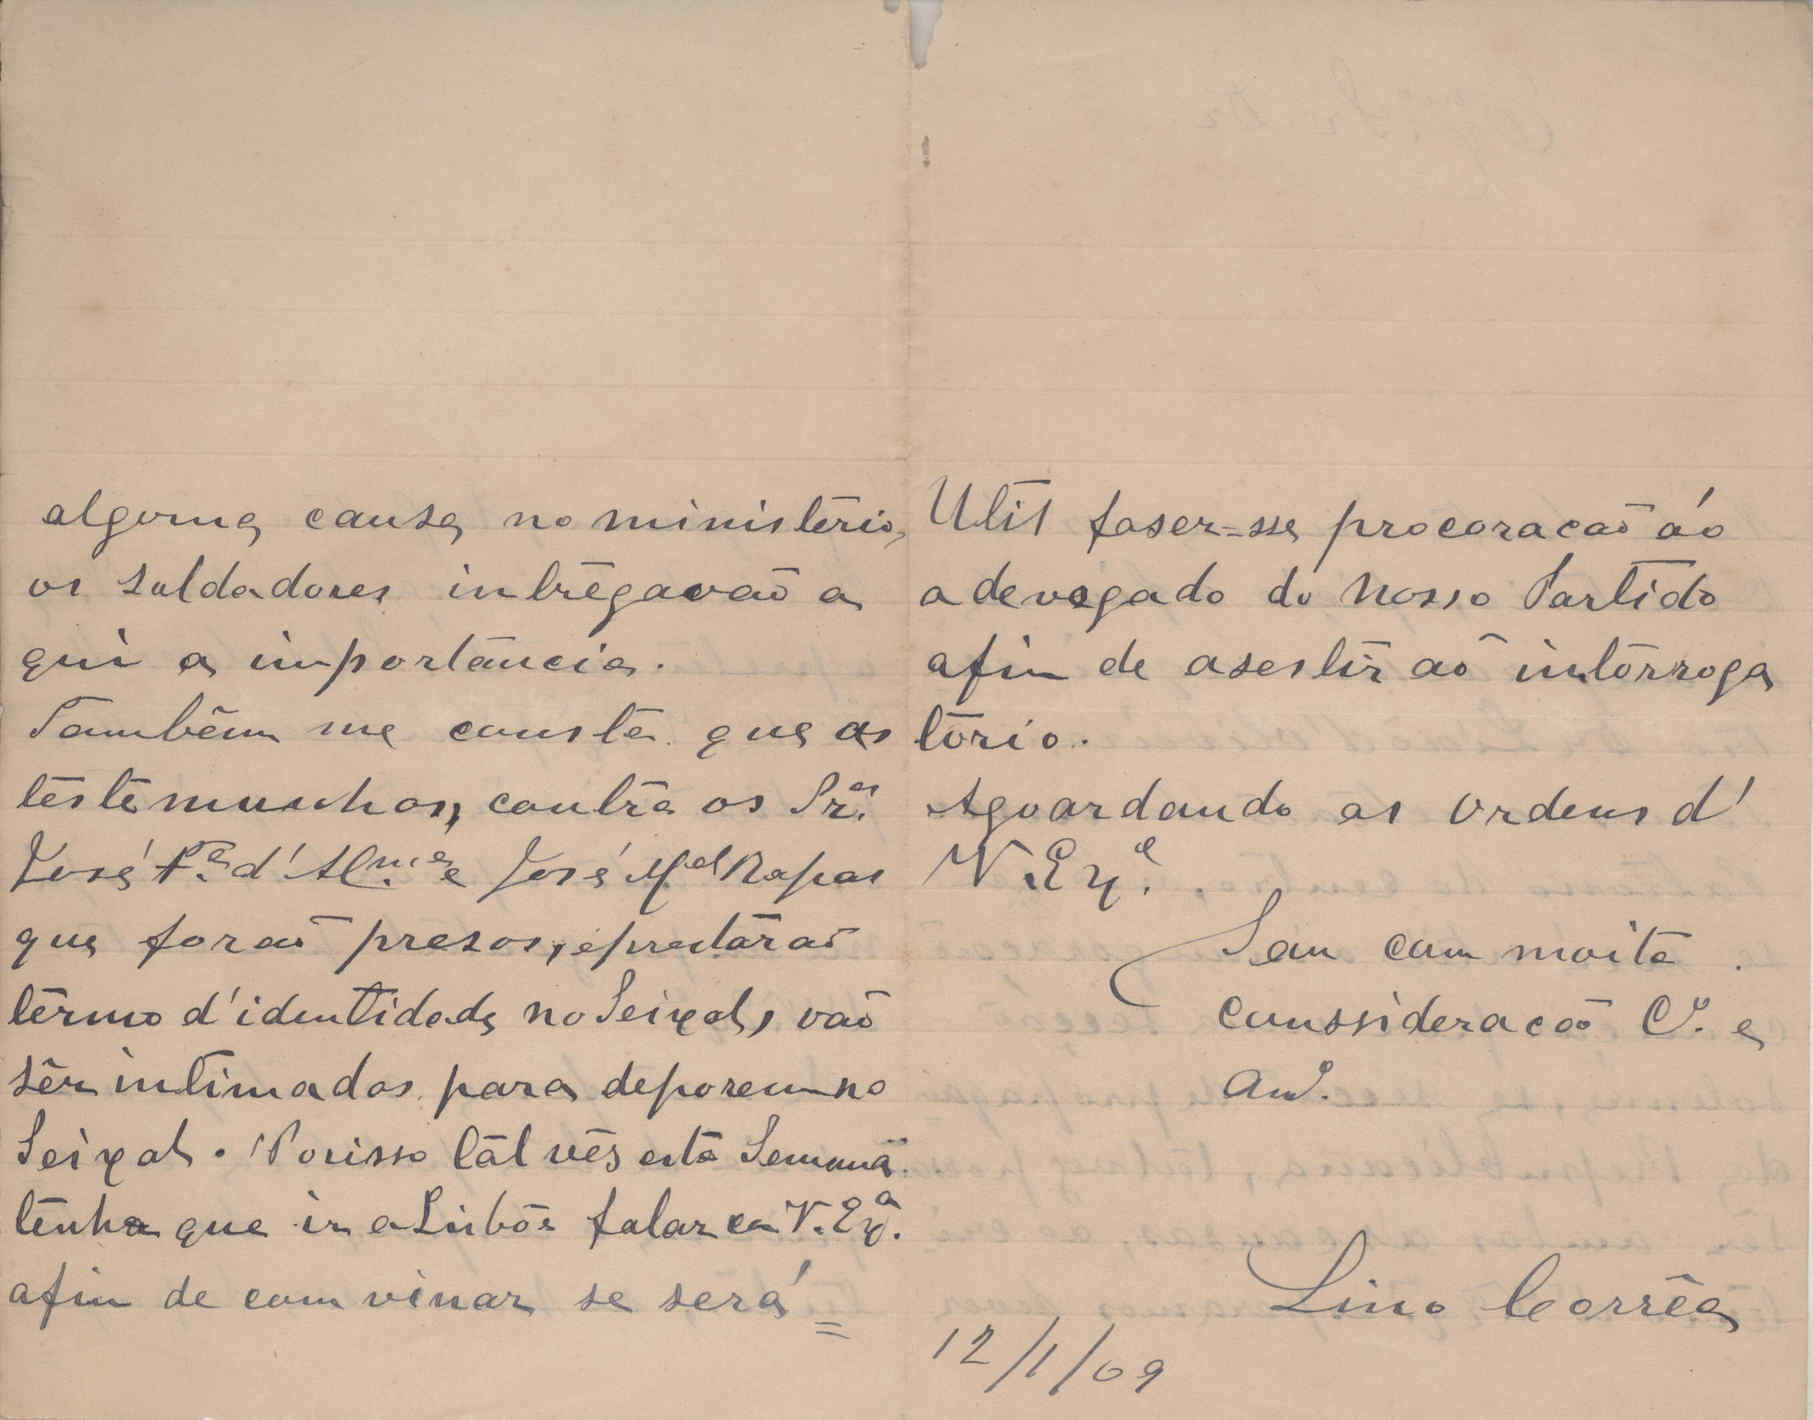 alguma causa no ministério,
os soldadores intregavão a
qui a importância.
Também me consta que as
testemunhas, contra os Srs.
José Pª d'Almª e José Mel Rapas
que forão presos, e prestárão
têrmo d'identidade no Seixal, vão
sêr intimados para deporem no
Seixal. Porisso tál vês esta Semana
tenha que ir a Lisbôa falar com V. Exª.
afim de comvinar se será =
Util faser=sse procoracaõ áo
adevogado do Nosso Partido
afim de asestir aõ intorroga
tório.
Agoardando as ordens d'
V. Exª.
Sou com moita
conssideracaõ Cº. e
Amº.
Lino Corrêa
12/1/09